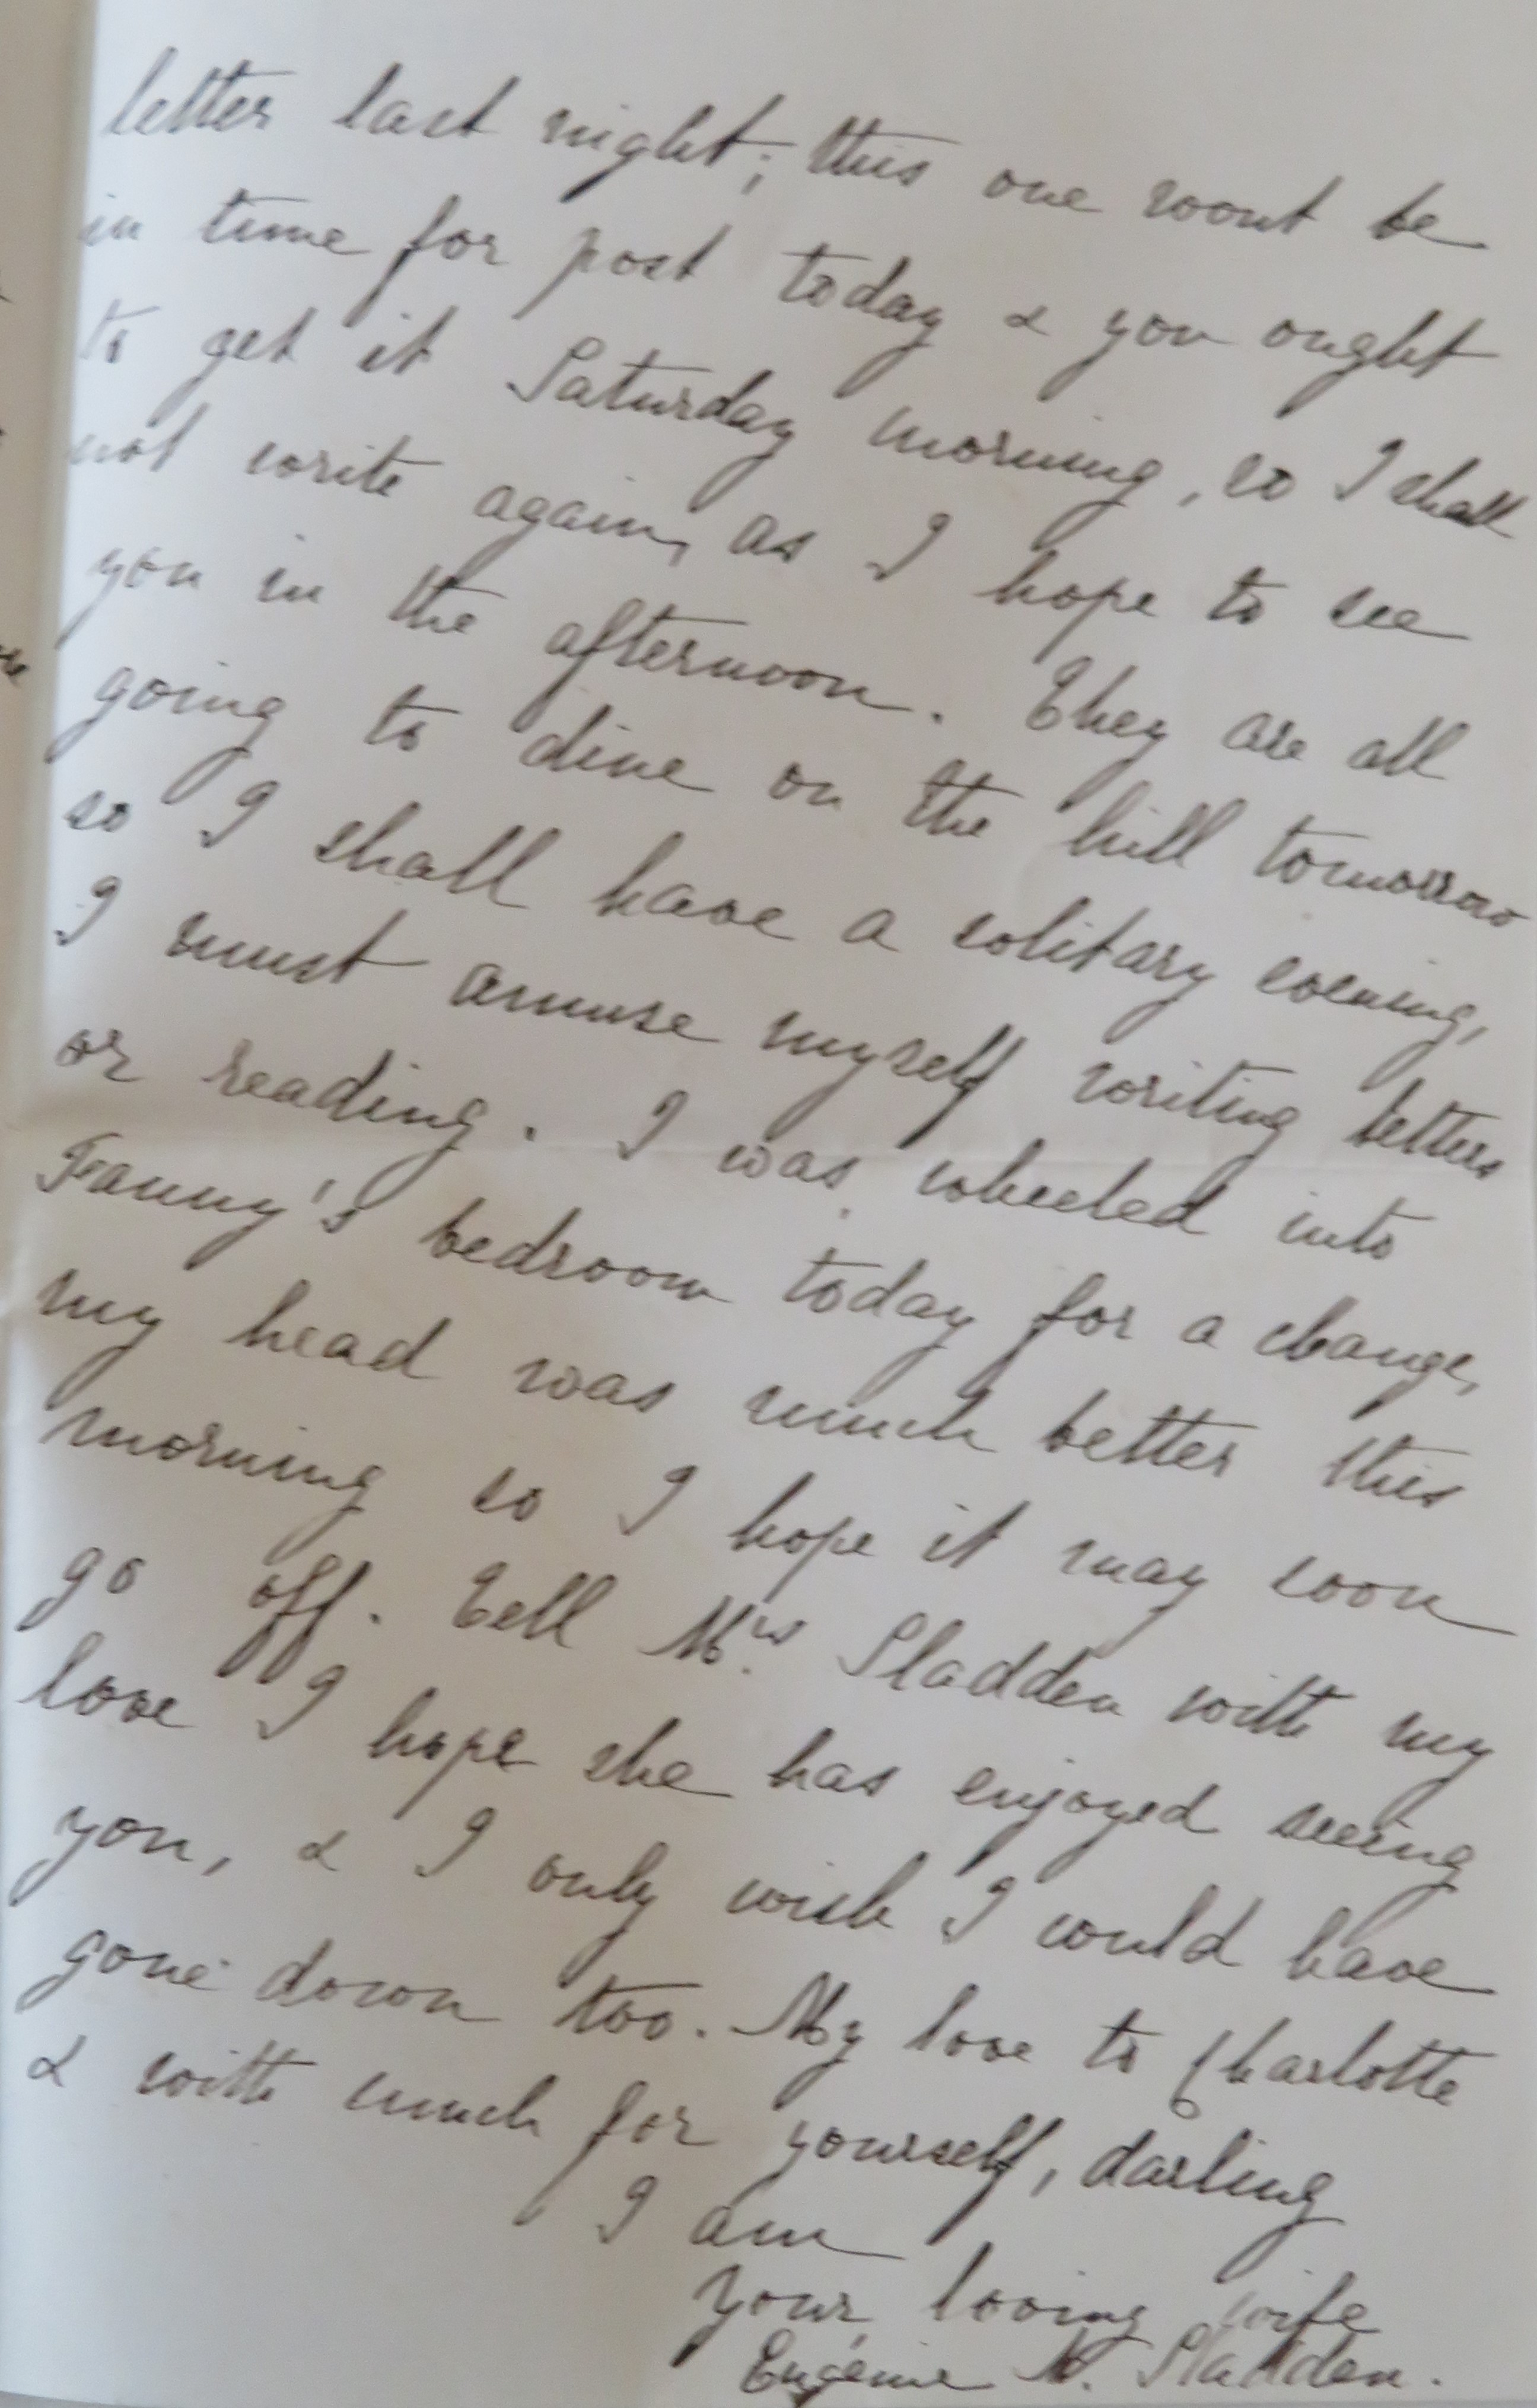 letter last night; this one wont be
in time for post today & you ought
to get it Saturday morning, so I shall
not write again, as I hope to see
you in the afternoon. They are all
going to dine on the hill tomorrow
so I shall have a solitary evening,
I must amuse myself writing letters
or reading. I was wheeled into
Fanny's bedroom today for a change,
my head was much better this
morning so I hope it may soon
go off. Tell Mrs. Sladden with my
love I hope she has enjoyed seeing
you, & I only wish I could have
gone down too. My love to Charlotte
& with much for yourself, darling
I am
your loving wife
Eugénie N. Sladden.